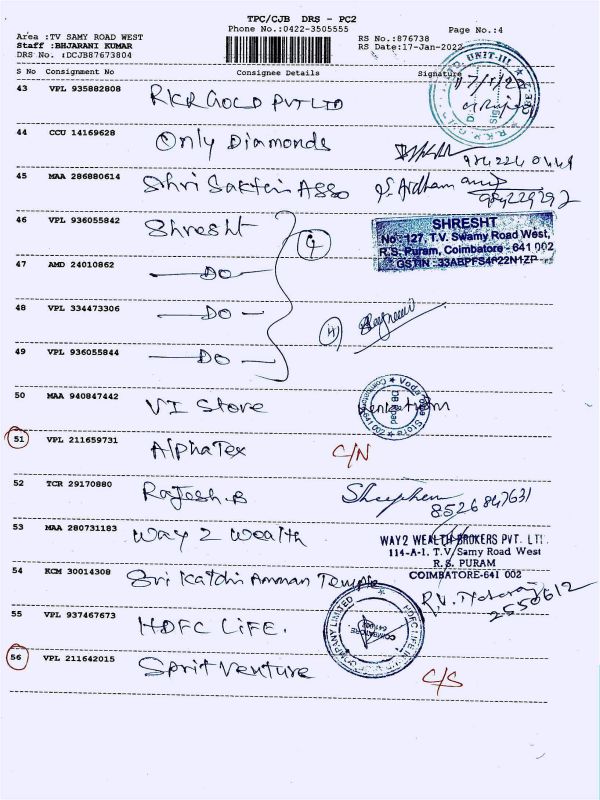 TPC/CJB DRS - PC2
Phone No.:0422-3505555
Page No.:4
Area :TV SAMY ROAD WEST
Staff :BHJARANI KUMAR
DRS No. :DCJB87673804
RS No.:876738
RS Date:17-Jan-2022
S No Consignment No Consignee Details Signature
43 VPL 935882808 RKR GOLD PVT LTD
UNIT-III
44 CCU 14169628 Only Diamonds
45 MAA 286880614 Shri Sakthi Asso
46 VPL 936055842 Shresht
4
SHRESHT
No -127, T.V. Swamy Road West,
R.S. Puram, Coimbatore - 641 002
47 AMD 24010862 DO
48 VPL 334473306 DO
49 VPL 936055844 DO
50 MAA 940847442 VI Store
51 VPL 211659731 AlphaTex C/N
52 TCR 29170880 Rajesh.B
8526847631
53 MAA 280731183 Way 2 Wealth
WAY2 WEALTH BROKERS PVT. LTD
114-A-1, T.V. Samy Road West
R.S. PURAM
COIMBATORE-641 002
54 KCM 30014308 Sri Katchi Amman Temple
2550612
55 VPL 937467673 HDFC LiFE.
56 VPL 211642015 Sprit Venture C/S